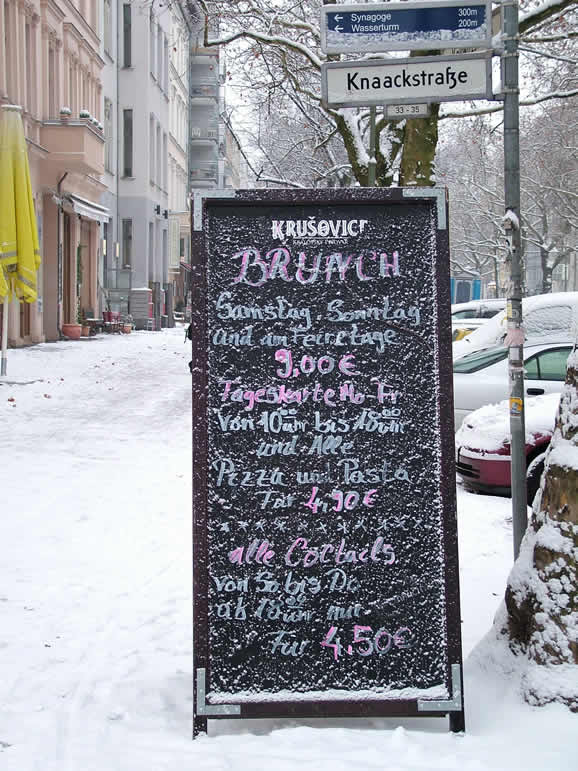 ← Synagoge 300m
← Wasserturm 200m
Knaackstraße
33 - 35
KRUŠOVICE
BRUNCH
Samstag, Sonntag
und am Feiertage
9,00 €
Tageskarte Mo-Fr
Von 10 Uhr bis 18 00 Uhr
und Alle
Pizza und Pasta
Für 4,90 €
alle Coctails
von So. bis Do.
ab 18 00 Uhr nur
Für 4,50 €